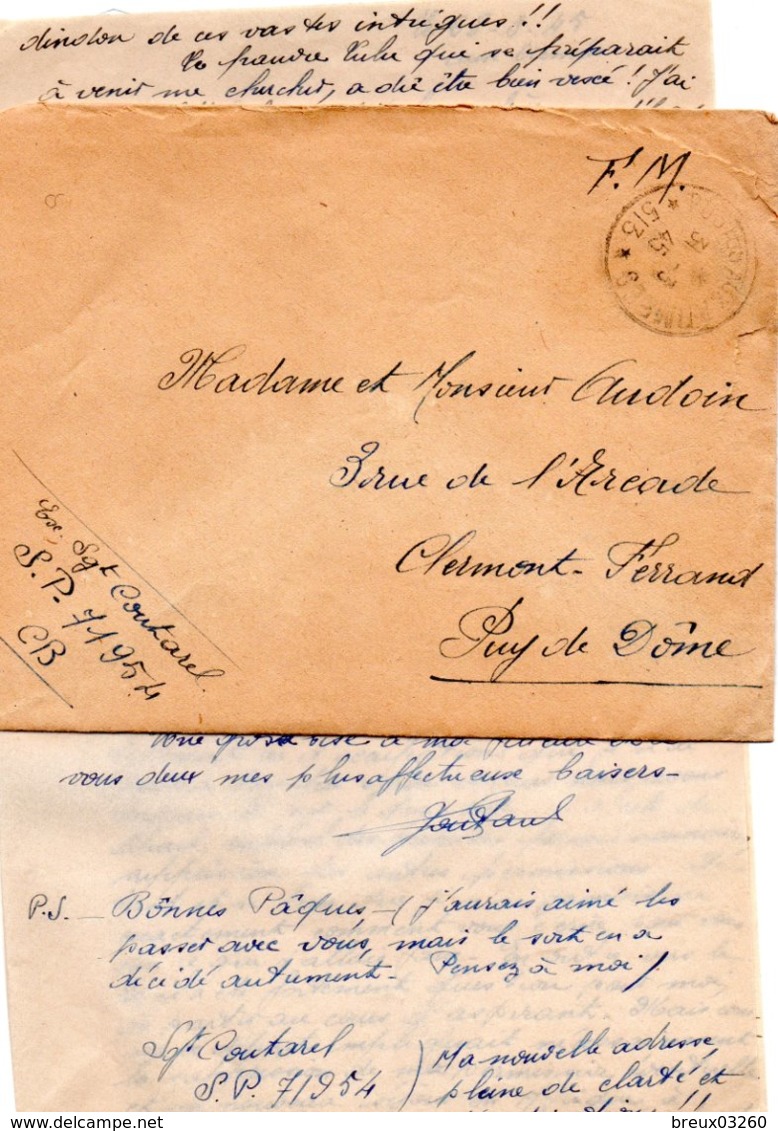 dindon de ces vastes intrigues!!
Ce pauvre Lulu qui se préparait
à venir me chercher, a dû être bien vexé! J'ai
F.M.
513
3
45
Madame et Monsieur Audoin
3 rue de l'Arcade
Clermont-Ferrand
Puy de Dôme
Ex: Sgt Coutarel
S.P. 71954
CB
vous deux mes plus affectueuse baisers-
P.S.- Bonnes Pâques-(J'aurais aimé les
passer avec vous, mais le sort en a
décidé autrement- Pensez à moi!
Sgt Coutarel
S.P. 71954
Ma nouvelle adresse,
pleine de clarté et
delcampe.net
breux03260